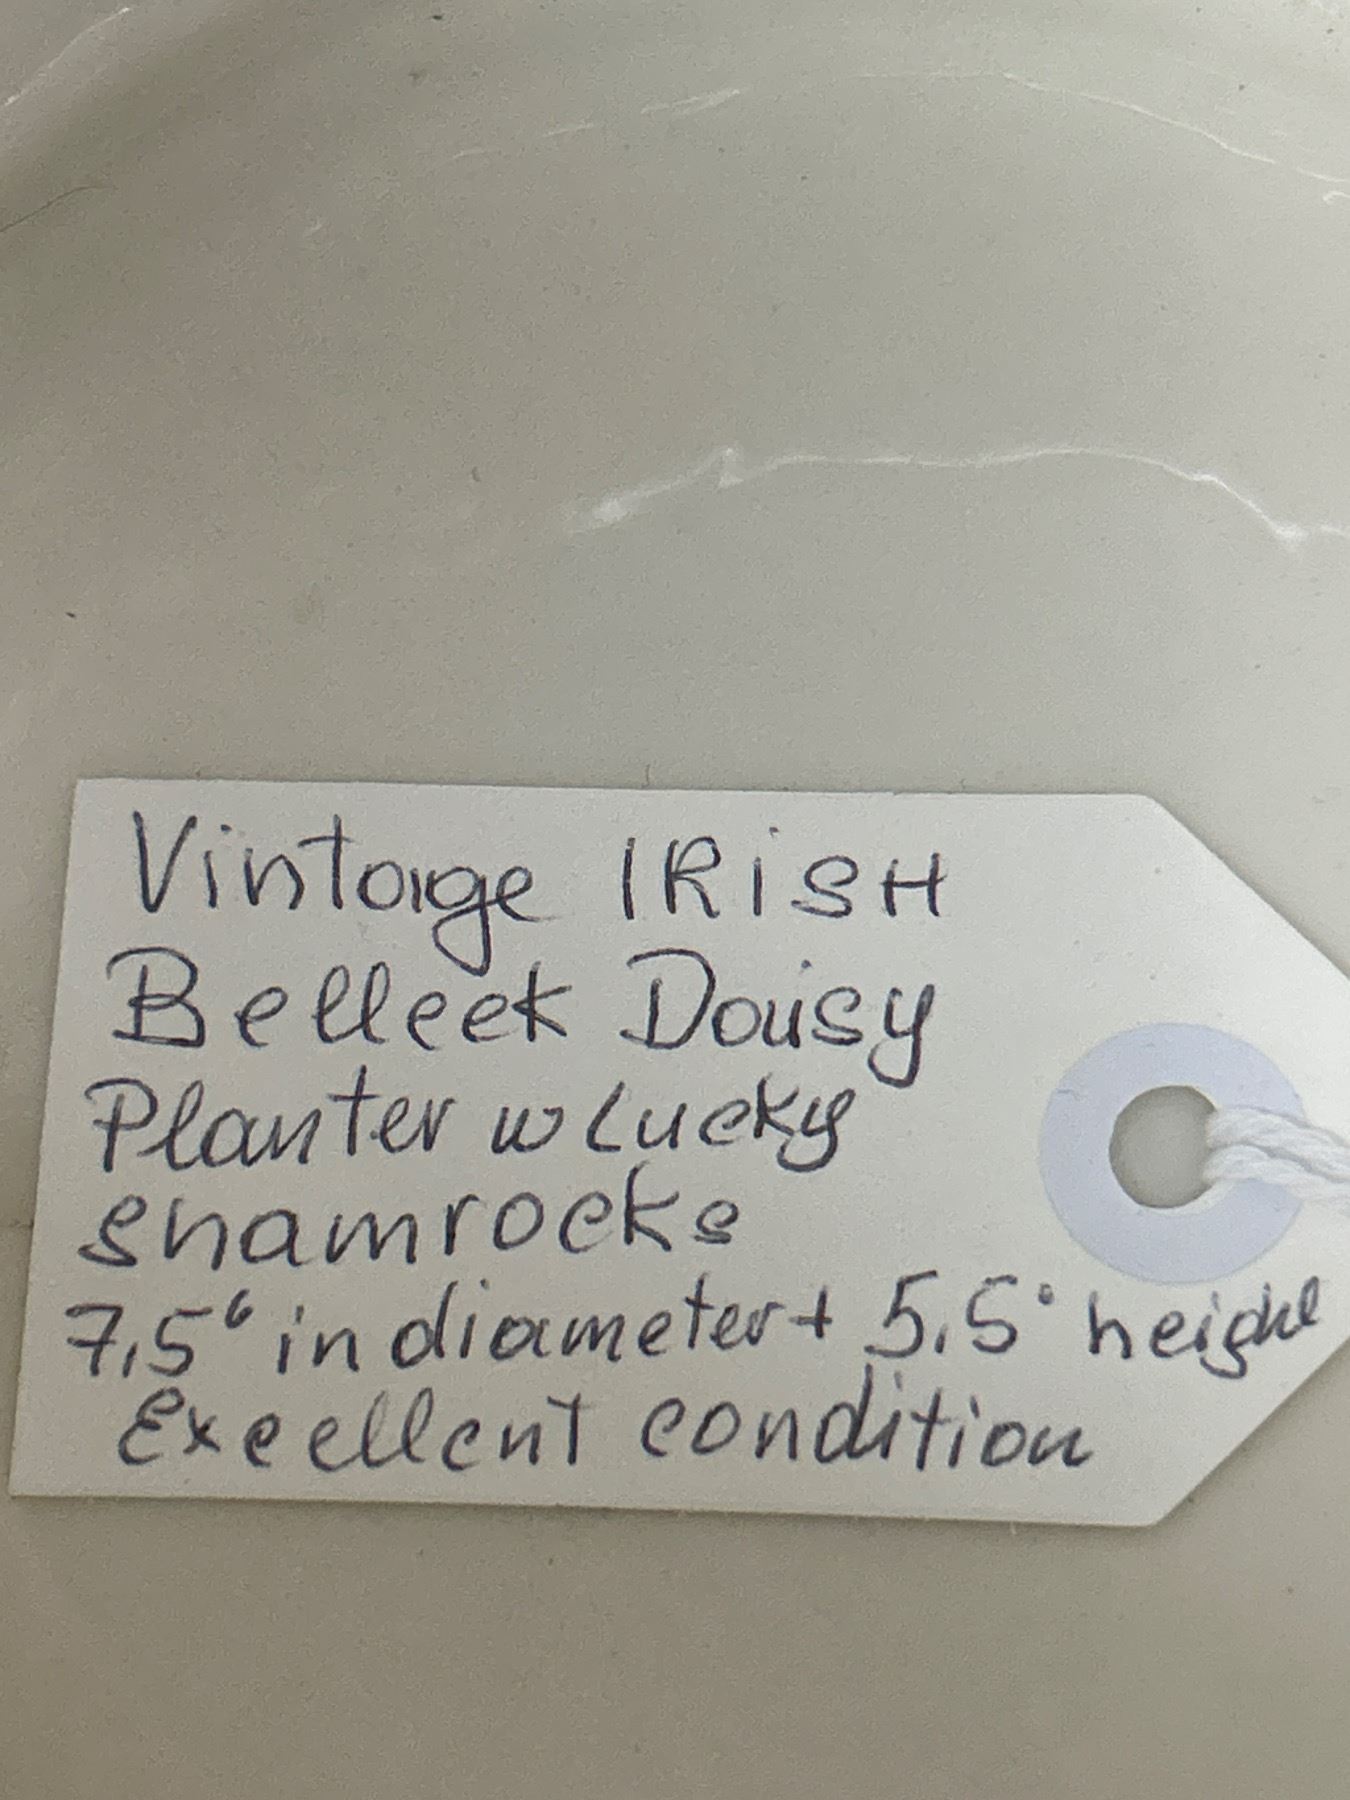 Vintage IRiSH
Belleek Daisy
Planter w Lucky
shamrocks
7.5" in diameter + 5.5" height
Excellent condition